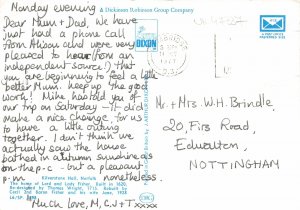 Monday evening
Dear Mum + Dad, We have
just had a phone call
from Alison and were very
pleased to hear (from an
independent source!) that
you are beginning to feel a lot
better Mum. Keep up the good
work! Mike has told you of
our trip on Saturday - it did
make a nice change, for us
to have a little outing
together. I don't think we
actually saw the house
bathed in autumn sunshine as
on the p.c. - but a pleasant
p.m. nonetheless.
Kilverstone Hall, Norfolk
The home of Lord and Lady Fisher. Built in 1620.
Re-designed by Thomas Wright, 1715. Rebuilt by
Cecil and Josie Fisher and his eldest son, 1928
Much love, M, C, J + T xxxx
A Dickinson Robinson Group Company
DIXON
POSTAGE
PREFERRED SIZE
1977
Mr + Mrs W.H. Brindle,
20, Firs Road,
Edwalton,
NOTTINGHAM